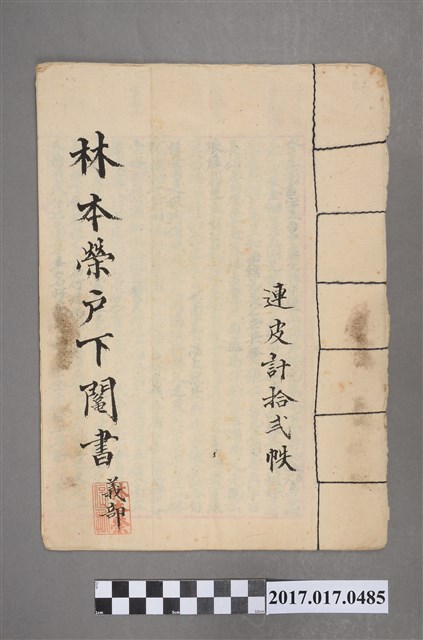 連皮計拾弍帙
林本榮户下鬮書 義部
2017.017.0485